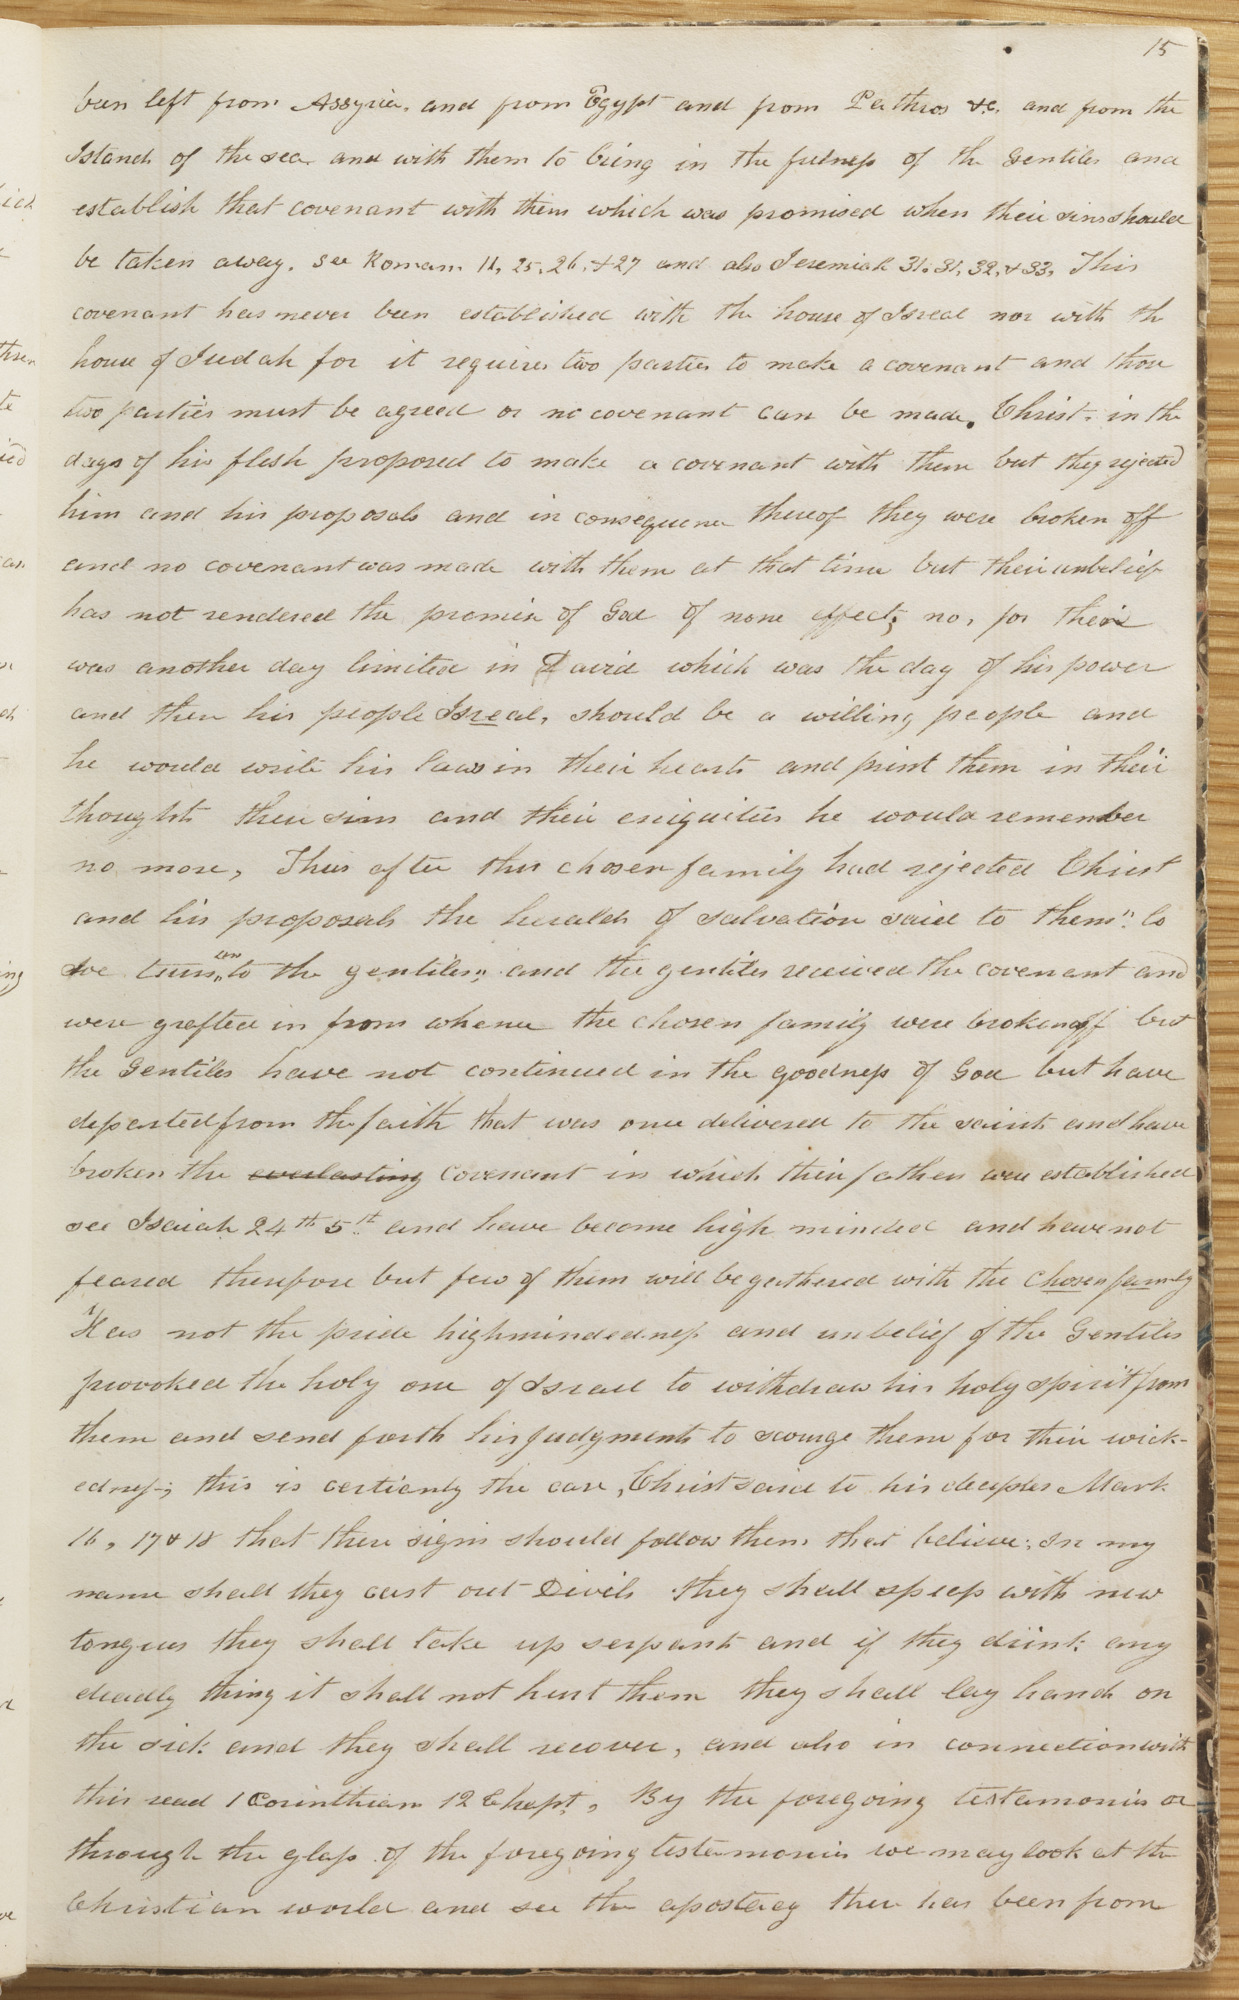 15
been left from Assyria, and from Egypt and from Pathros &c. and from the
Islands of the sea and with them to bring in the fulness of the Gentiles and
establish that covenant with them which was promised when their sins should
be taken away. see Romans 11, 25, 26, & 27 and also Jeremiah 31. 31, 32, & 33, This
covenant has never been established with the house of Isreal nor with the
house of Judah for it requires two parties to make a covenant and those
two parties must be agreed or no covenant can be made. Christ. in the
days of his flesh proposed to make a covenant with them but they rejected
him and his proposals and in consequence thereof they were broken off
and no covenant was made with them at that time but their unbelief
has not rendered the promise of God of none effect; no, for their
was another day limited in David which was the day of his power
and then his people Isreal, should be a willing people and
he would write his laws in their hearts and print them in their
thoughts their sins and their eniquities he would remember
no more, Thus after this chosen family had rejected Christ
and his proposals the heralds of salvation said to them "lo
we turn un to the gentiles," and the gentiles received the covenant and
were grafted in from whence the chosen family were broken off but
the Gentiles have not continued in the goodness of God but have
departed from the faith that was once delivered to the saints and have
broken the everlasting covenant in which their fathers were established
see Isaiah 24th 5th and have become high minded and have not
feared therefore but few of them will be gathered with the chosen family
Has not the pride highmindedness and unbelief of the Gentiles
provoked the holy one of Israel to withdraw his holy spirit from
them and send forth his judgments to scourge them for their wick-
edness; this is certienly the case, Christ said to his deciples Mark
16, 17 & 18 that these signs should follow them that believe; In my
name shall they cast out Divels they shall speep with new
tongues they shall take up serpants and if they drink any
deadly thing it shall not hurt them they shall lay hands on
the sick and they shall recover, and also in connection with
this read 1 Corinthians 12 Chapt, By the foregoing testamonies or
through the glass of the foregoing testamonies we may look at the
Christian world and see the apostacy there has been from